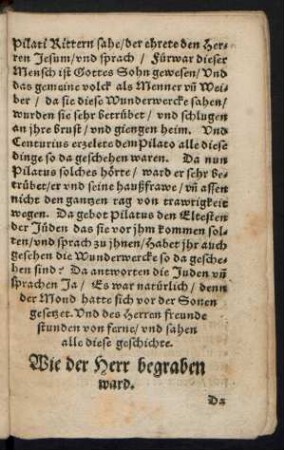 Pilati Rittern sahe/der ehrete den Her-
ren Jesum/vnd sprach / Fürwar dieser
Mensch ist Gottes Sohn gewesen/Vnd
das gemeine volck als Menner vñ Wei-
ber / da sie diese Wunderwercke sahen/
wurden sie sehr betrübet / vnd schlugen
an jhre brust/ vnd giengen heim. Vnd
Centurius erzelete dem Pilato alle diese
dinge so da geschehen waren. Da nun
Pilatus solches hörte/ ward er sehr be-
trübet/er vnd seine haußfrawe/ vñ assen
nicht den gantzen rag von trawrigkeit
wegen. Da gebot Pilatus den Eltesten
der Jüden das sie vor jhm kommen sol-
ten/vnd sprach zu jhnen/Habet jhr auch
gesehen die Wunderwercke so da gesche-
hen sind? Da antworten die Juden vñ
sprachen Ja/ Es war natürlich/ denn
der Mond hatte sich vor der Sonen
gesetzet. Vnd des Herren freunde
stunden von ferne/ vnd sahen
alle diese geschichte.
Wie der Herr begraben
ward.
Da